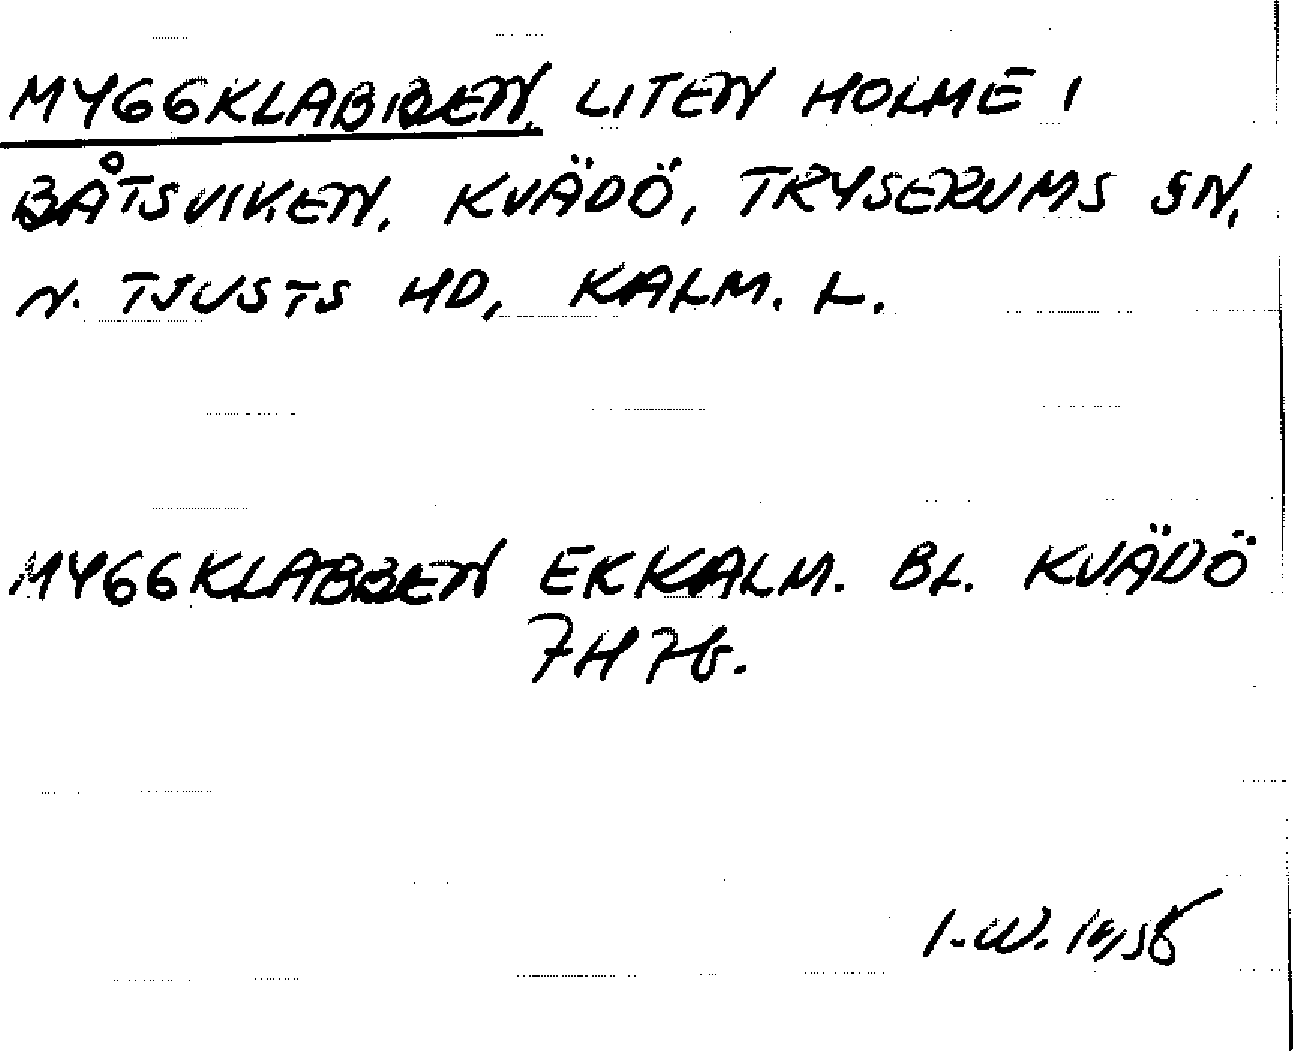 MYGGKLABBEN, LITEN HOLME I
BÅTSVIKEN, KVÄDÖ, TRYSERUMS SN,
N. TJUSTS HD, KALM. L.
MYGGKLABBEN EKKALM. BL. KVÄDÖ
7H 7b.
I.W.